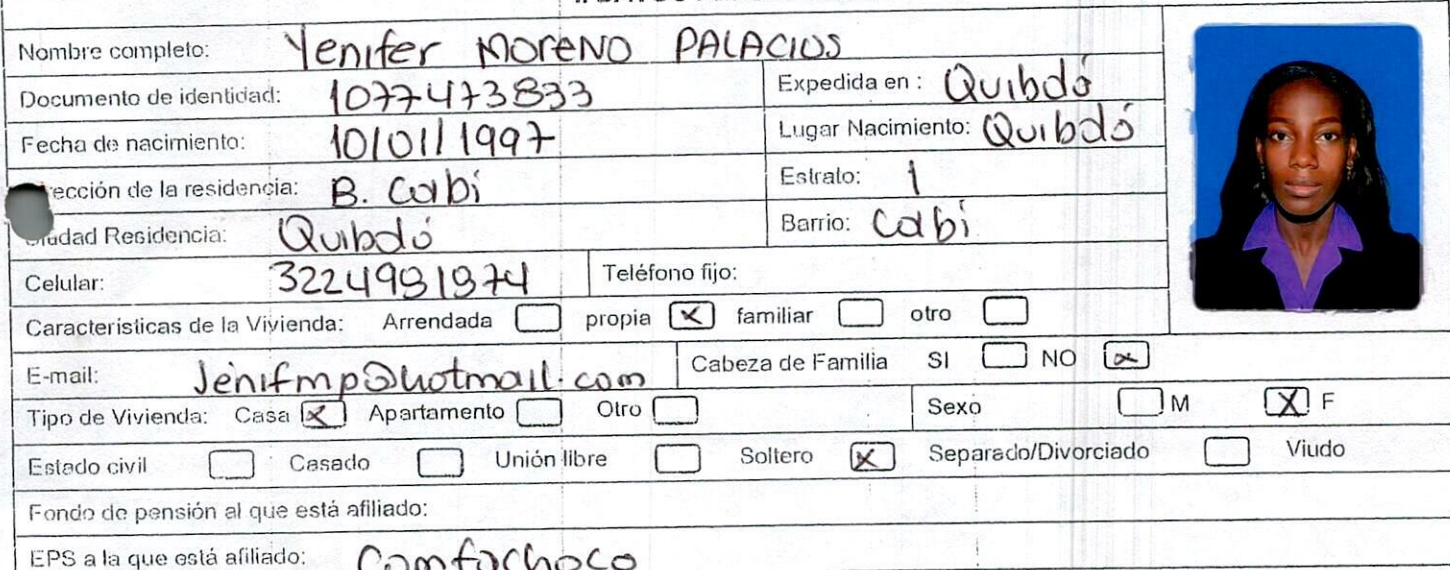 Nombre completo: Yenifer Moreno PALACIOS
Documento de identidad: 1077473833 Expedida en : Quibdó
Fecha de nacimiento: 10/01/1997 Lugar Nacimiento: Quibdó
ección de la residencia: B. Cabí Estrato: 1
udad Residencia: Quibdó Barrio: Cabí
Celular: 3224981974 Teléfono fijo:
Características de la Vivienda: Arrendada propia X familiar otro
E-mail: Jenifmp@hotmail.com Cabeza de Familia SI NO X
Tipo de Vivienda: Casa X Apartamento Otro Sexo M X F
Estado civil Casado Unión libre Soltero X Separado/Divorciado Viudo
Fondo de pensión al que está afiliado:
EPS a la que está afiliado: Comfachoco